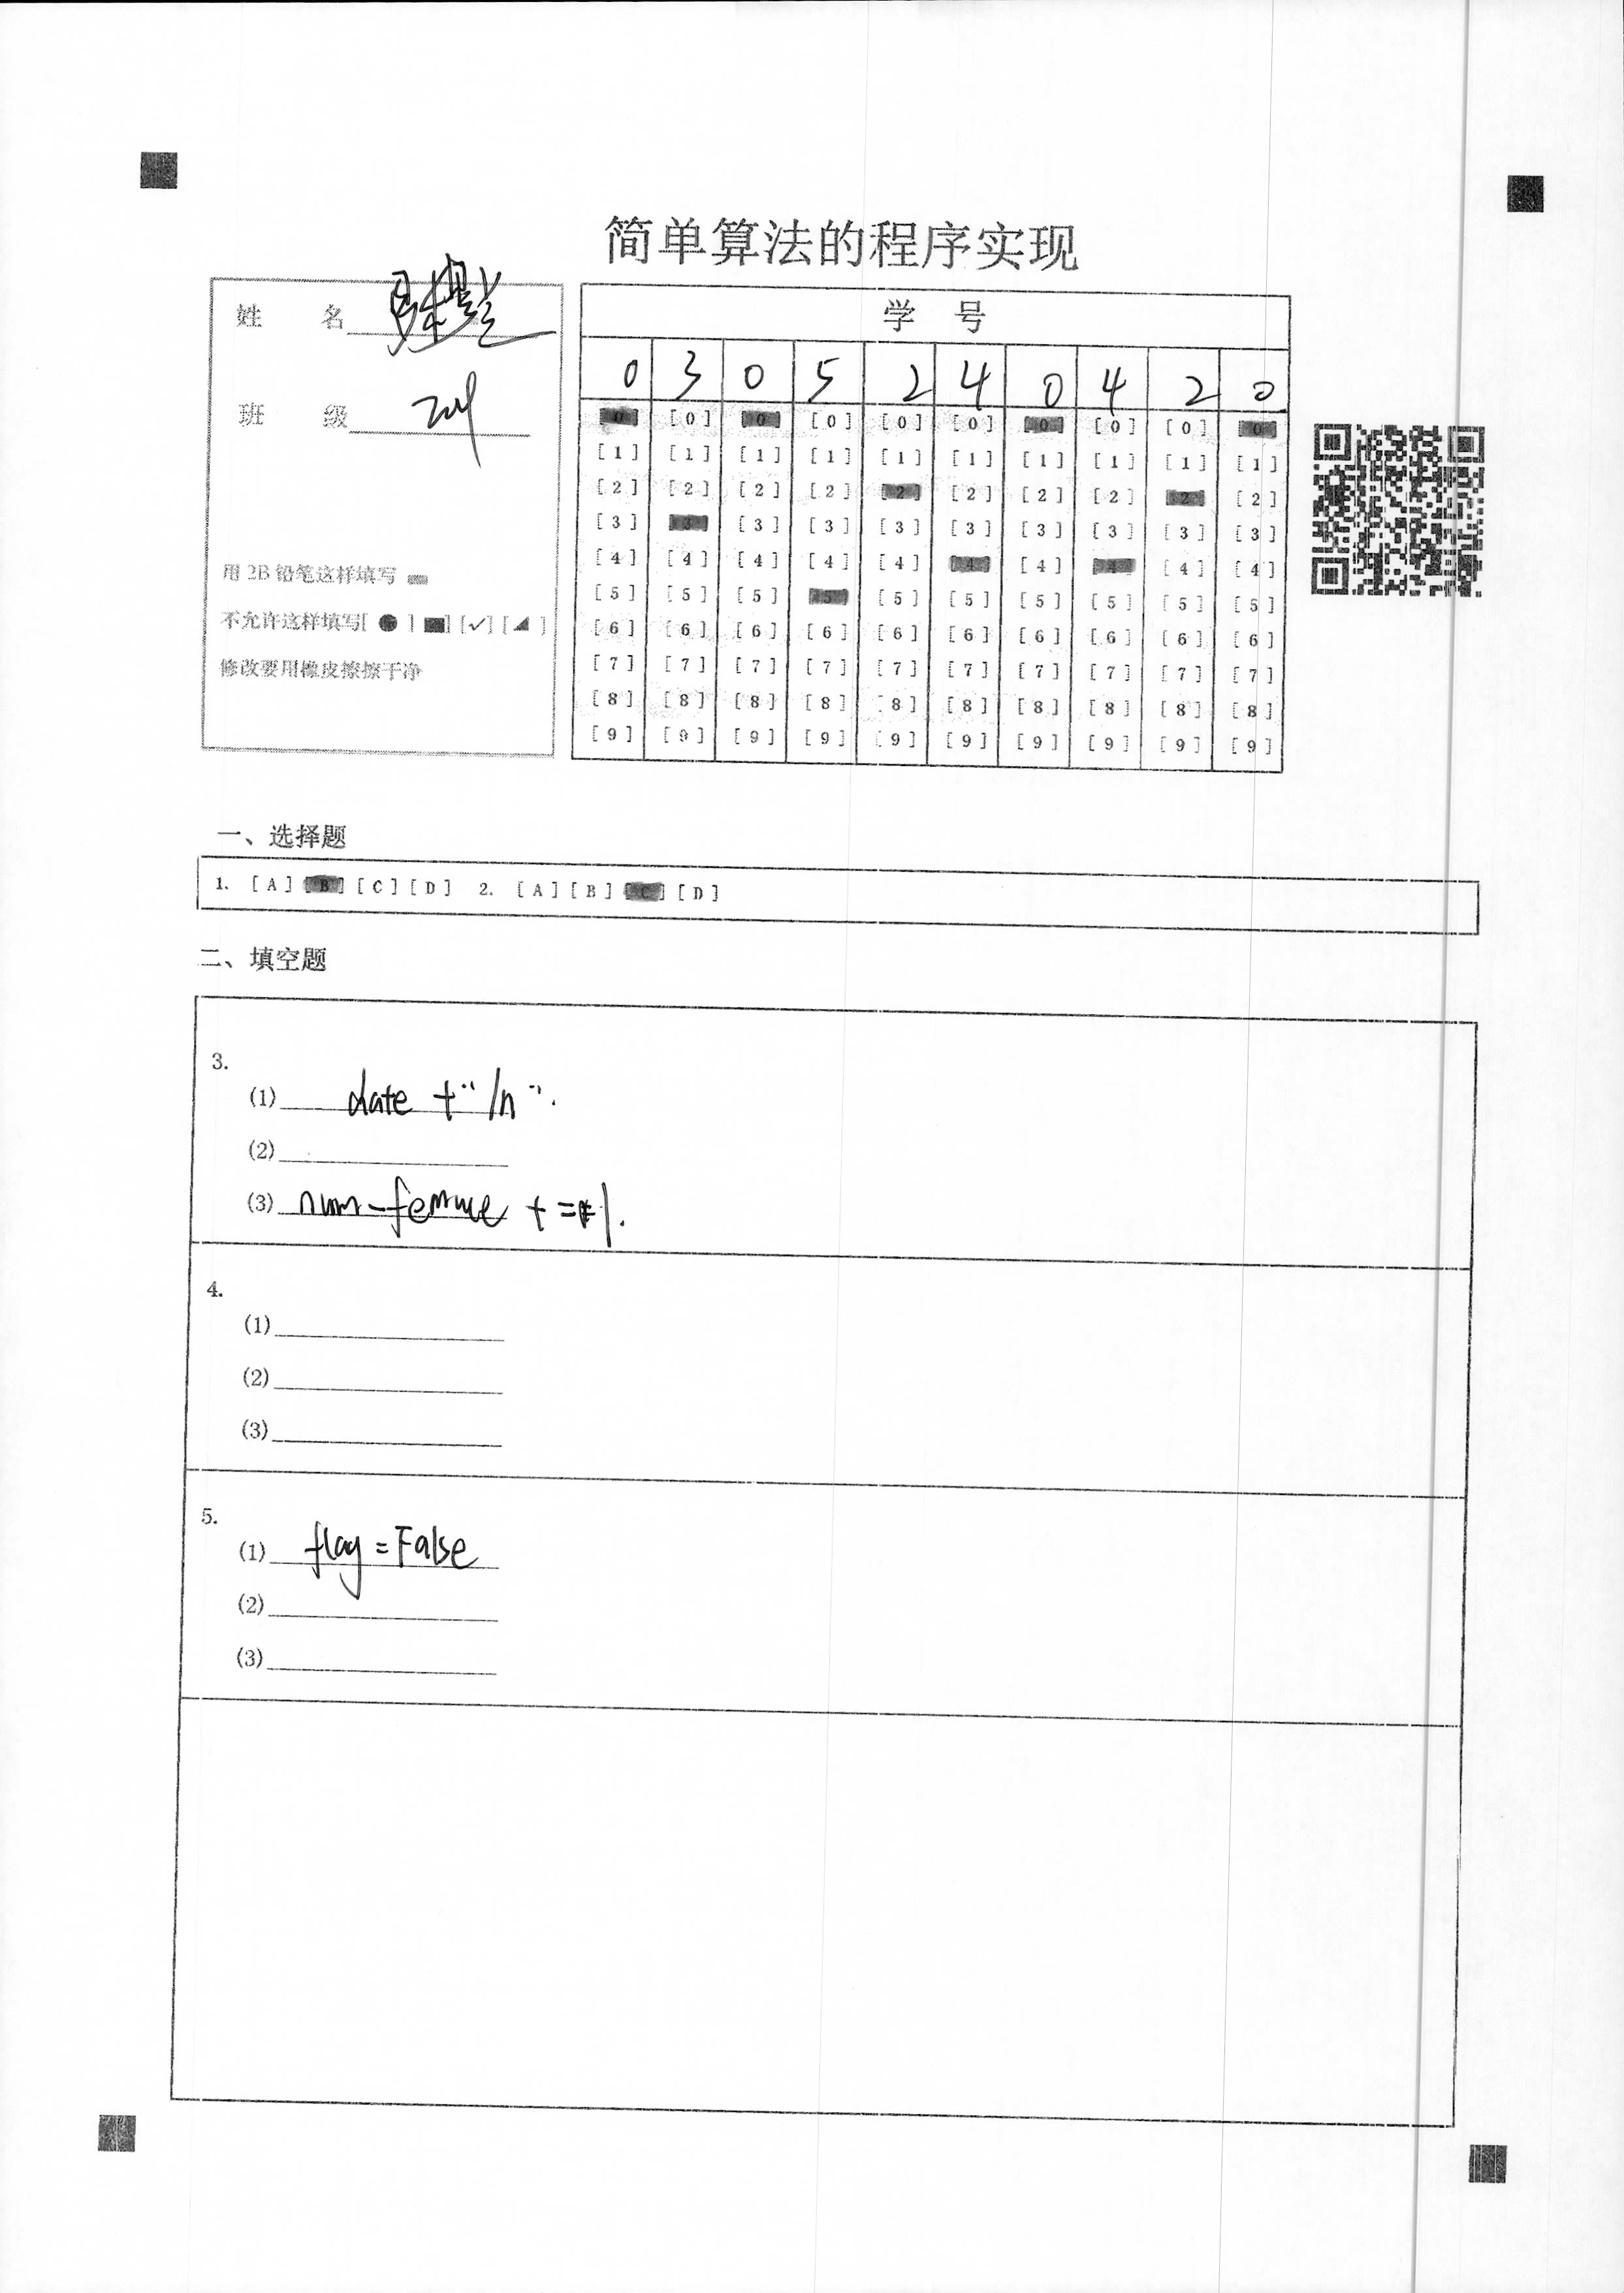 简单算法的程序实现
姓 名
班 级 204
用 2B 铅笔这样填写
不允许这样填写[ ● ] ■] [✓] [◢ ]
修改要用橡皮擦擦干净
学 号
0 3 0 5 2 4 0 4 2 0
[0] [0] [0] [0] [0] [0] [0] [0] [0] [0]
[1] [1] [1] [1] [1] [1] [1] [1] [1] [1]
[2] [2] [2] [2] [2] [2] [2] [2] [2] [2]
[3] [3] [3] [3] [3] [3] [3] [3] [3] [3]
[4] [4] [4] [4] [4] [4] [4] [4] [4] [4]
[5] [5] [5] [5] [5] [5] [5] [5] [5] [5]
[6] [6] [6] [6] [6] [6] [6] [6] [6] [6]
[7] [7] [7] [7] [7] [7] [7] [7] [7] [7]
[8] [8] [8] [8] [8] [8] [8] [8] [8] [8]
[9] [9] [9] [9] [9] [9] [9] [9] [9] [9]
一、选择题
1. [A] [B] [C] [D] 2. [A] [B] [C] [D]
二、填空题
3.
(1) date +"/n".
(2)
(3) += 1.
4.
(1)
(2)
(3)
5.
(1) flag = False
(2)
(3)